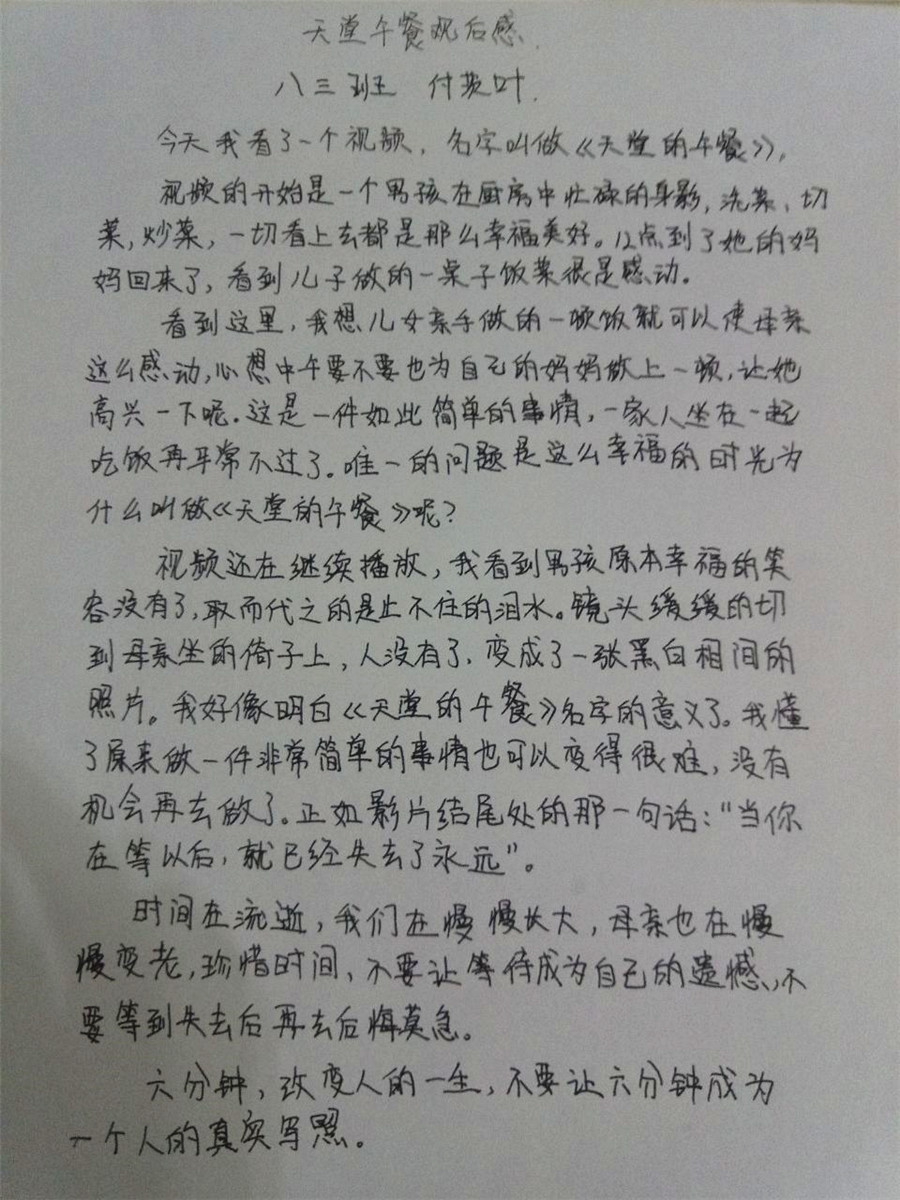 天堂午餐观后感.
八三班 付英叶.
今天我看了一个视频,名字叫做《天堂的午餐》,
视频的开始是一个男孩在厨房中忙碌的身影,洗菜、切
菜,炒菜,一切看上去都是那么幸福美好。12点到了她的妈
妈回来了,看到儿子做的一桌子饭菜很是感动.
看到这里,我想儿女亲手做的一顿饭就可以使母亲
这么感动,心想中午要不要也为自己的妈妈做上一顿,让她
高兴一下呢.这是一件如此简单的事情,一家人坐在一起
吃饭再平常不过了.唯一的问题是这么幸福的时光为
什么叫做《天堂的午餐》呢?
视频还在继续播放,我看到男孩原本幸福的笑
容没有了,取而代之的是止不住的泪水。镜头缓缓的切
到母亲坐的倚子上,人没有了,变成了一张黑白相间的
照片。我好像明白《天堂的午餐》名字的意义了。我懂
了原来做一件非常简单的事情也可以变得很难,没有
机会再去做了。正如影片结尾处的那一句话:“当你
在等以后,就已经失去了永远”。
时间在流逝,我们在慢慢长大,母亲也在慢
慢变老,珍惜时间、不要让等待成为自己的遗憾,不
要等到失去后再去后悔莫急。
六分钟,改变人的一生,不要让六分钟成为
一个人的真实写照。